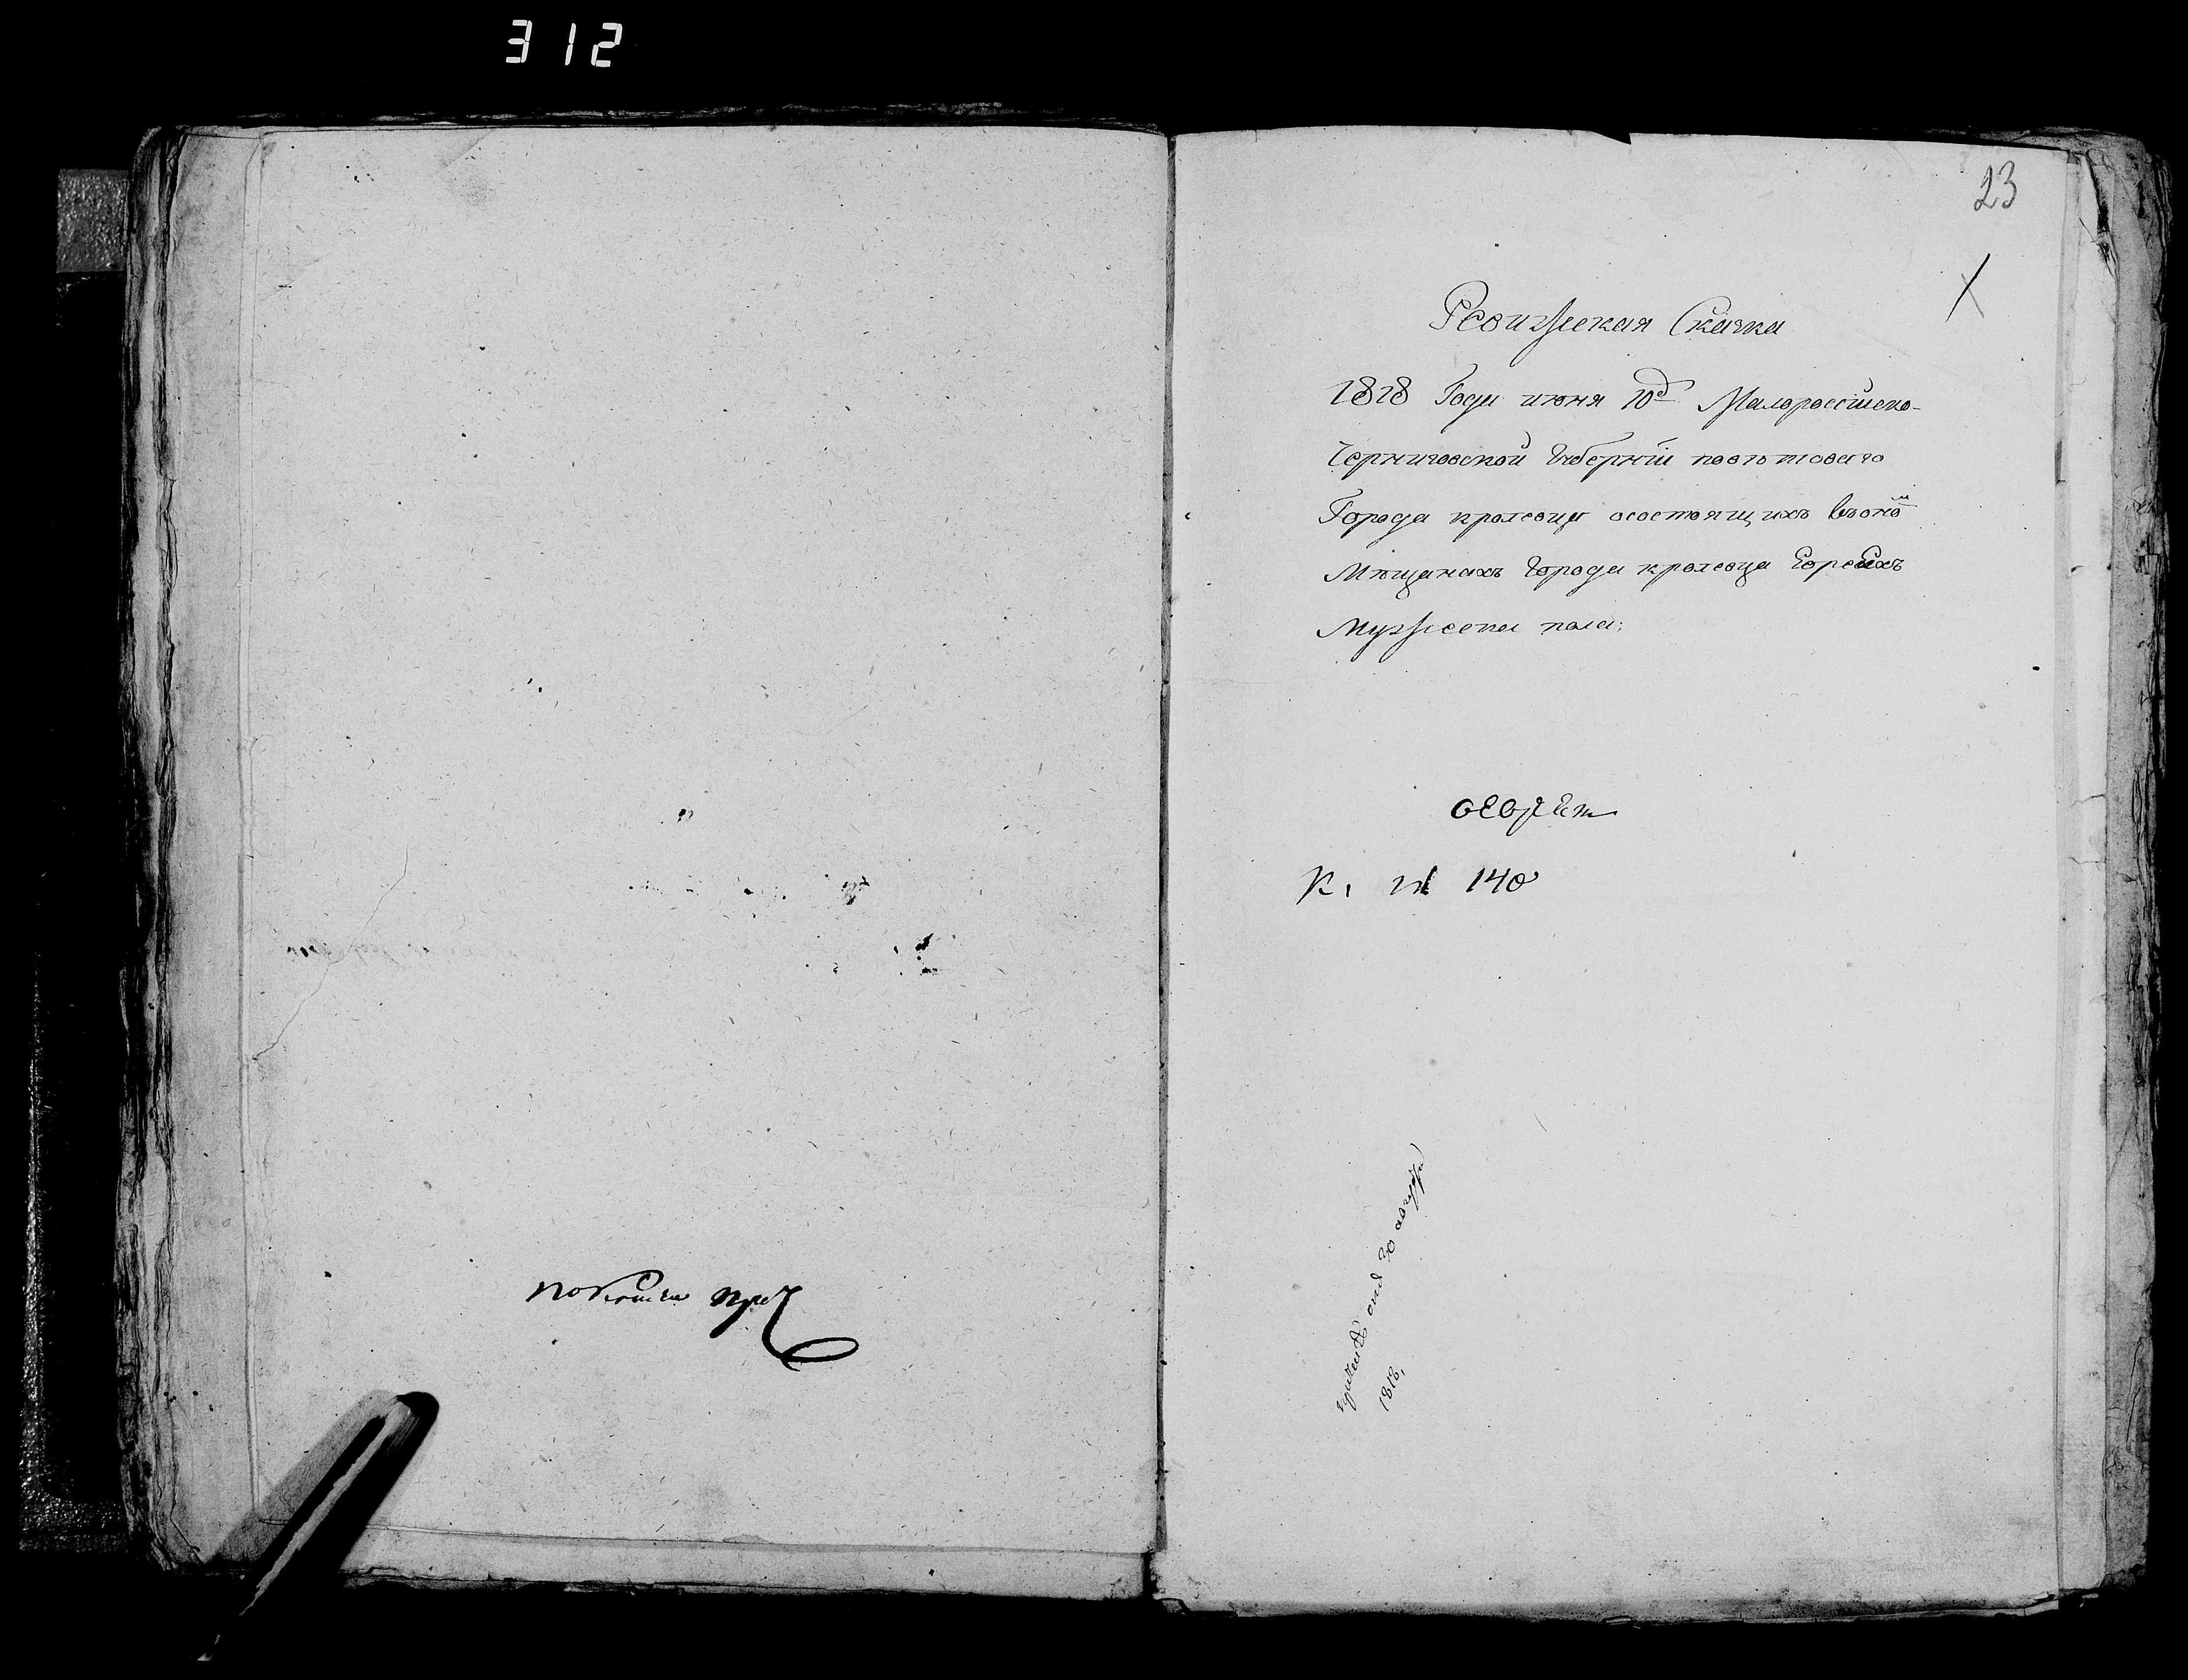 312
23
Ревижская Сказка
1818 Года июня 10д Малороссийско-
Черниговской Губернїи поветоваго
Города кролевца осостоящихъ въоном
Мещанахъ Города кролевца Евреихъ
Мужеска пола;
№ 140
30 августа
1818,